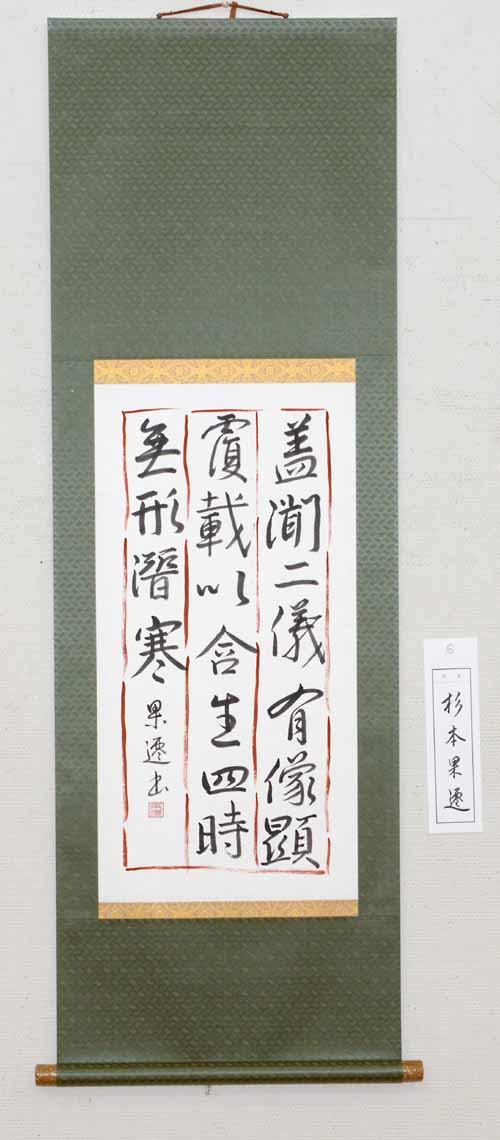 蓋聞二儀有像顯
覆載以含生四時
無形潛寒
果遷書
杉本果遷